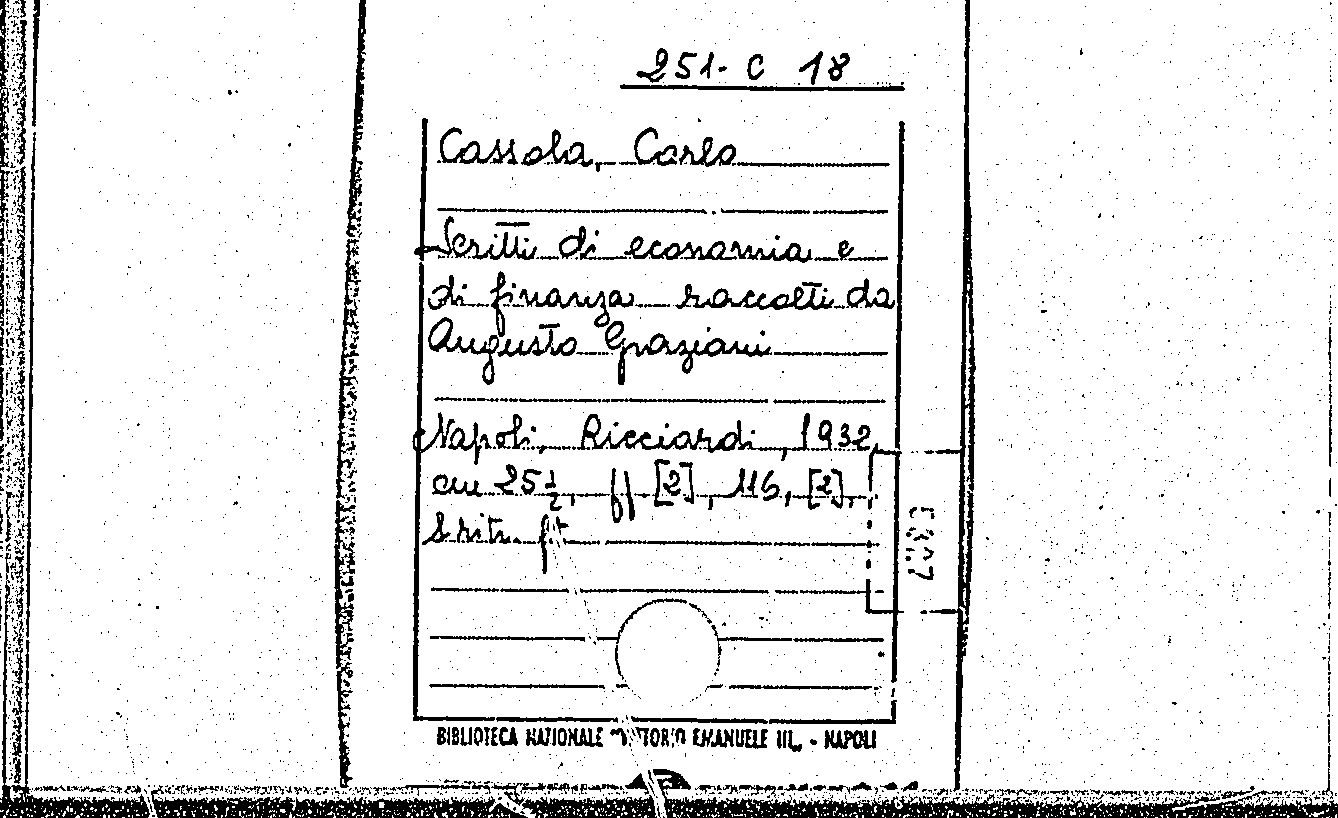 251- C 18
Cassola, Carlo
Scritti di economia e
di finanza raccolti da
Augusto Graziani
Napoli, Ricciardi, 1932,
cm 25 1/2, ff [2], 116, [2],
&ritr. ft
BIBLIOTECA NAZIONALE "VITTORIO EMANUELE III„ - NAPOLI